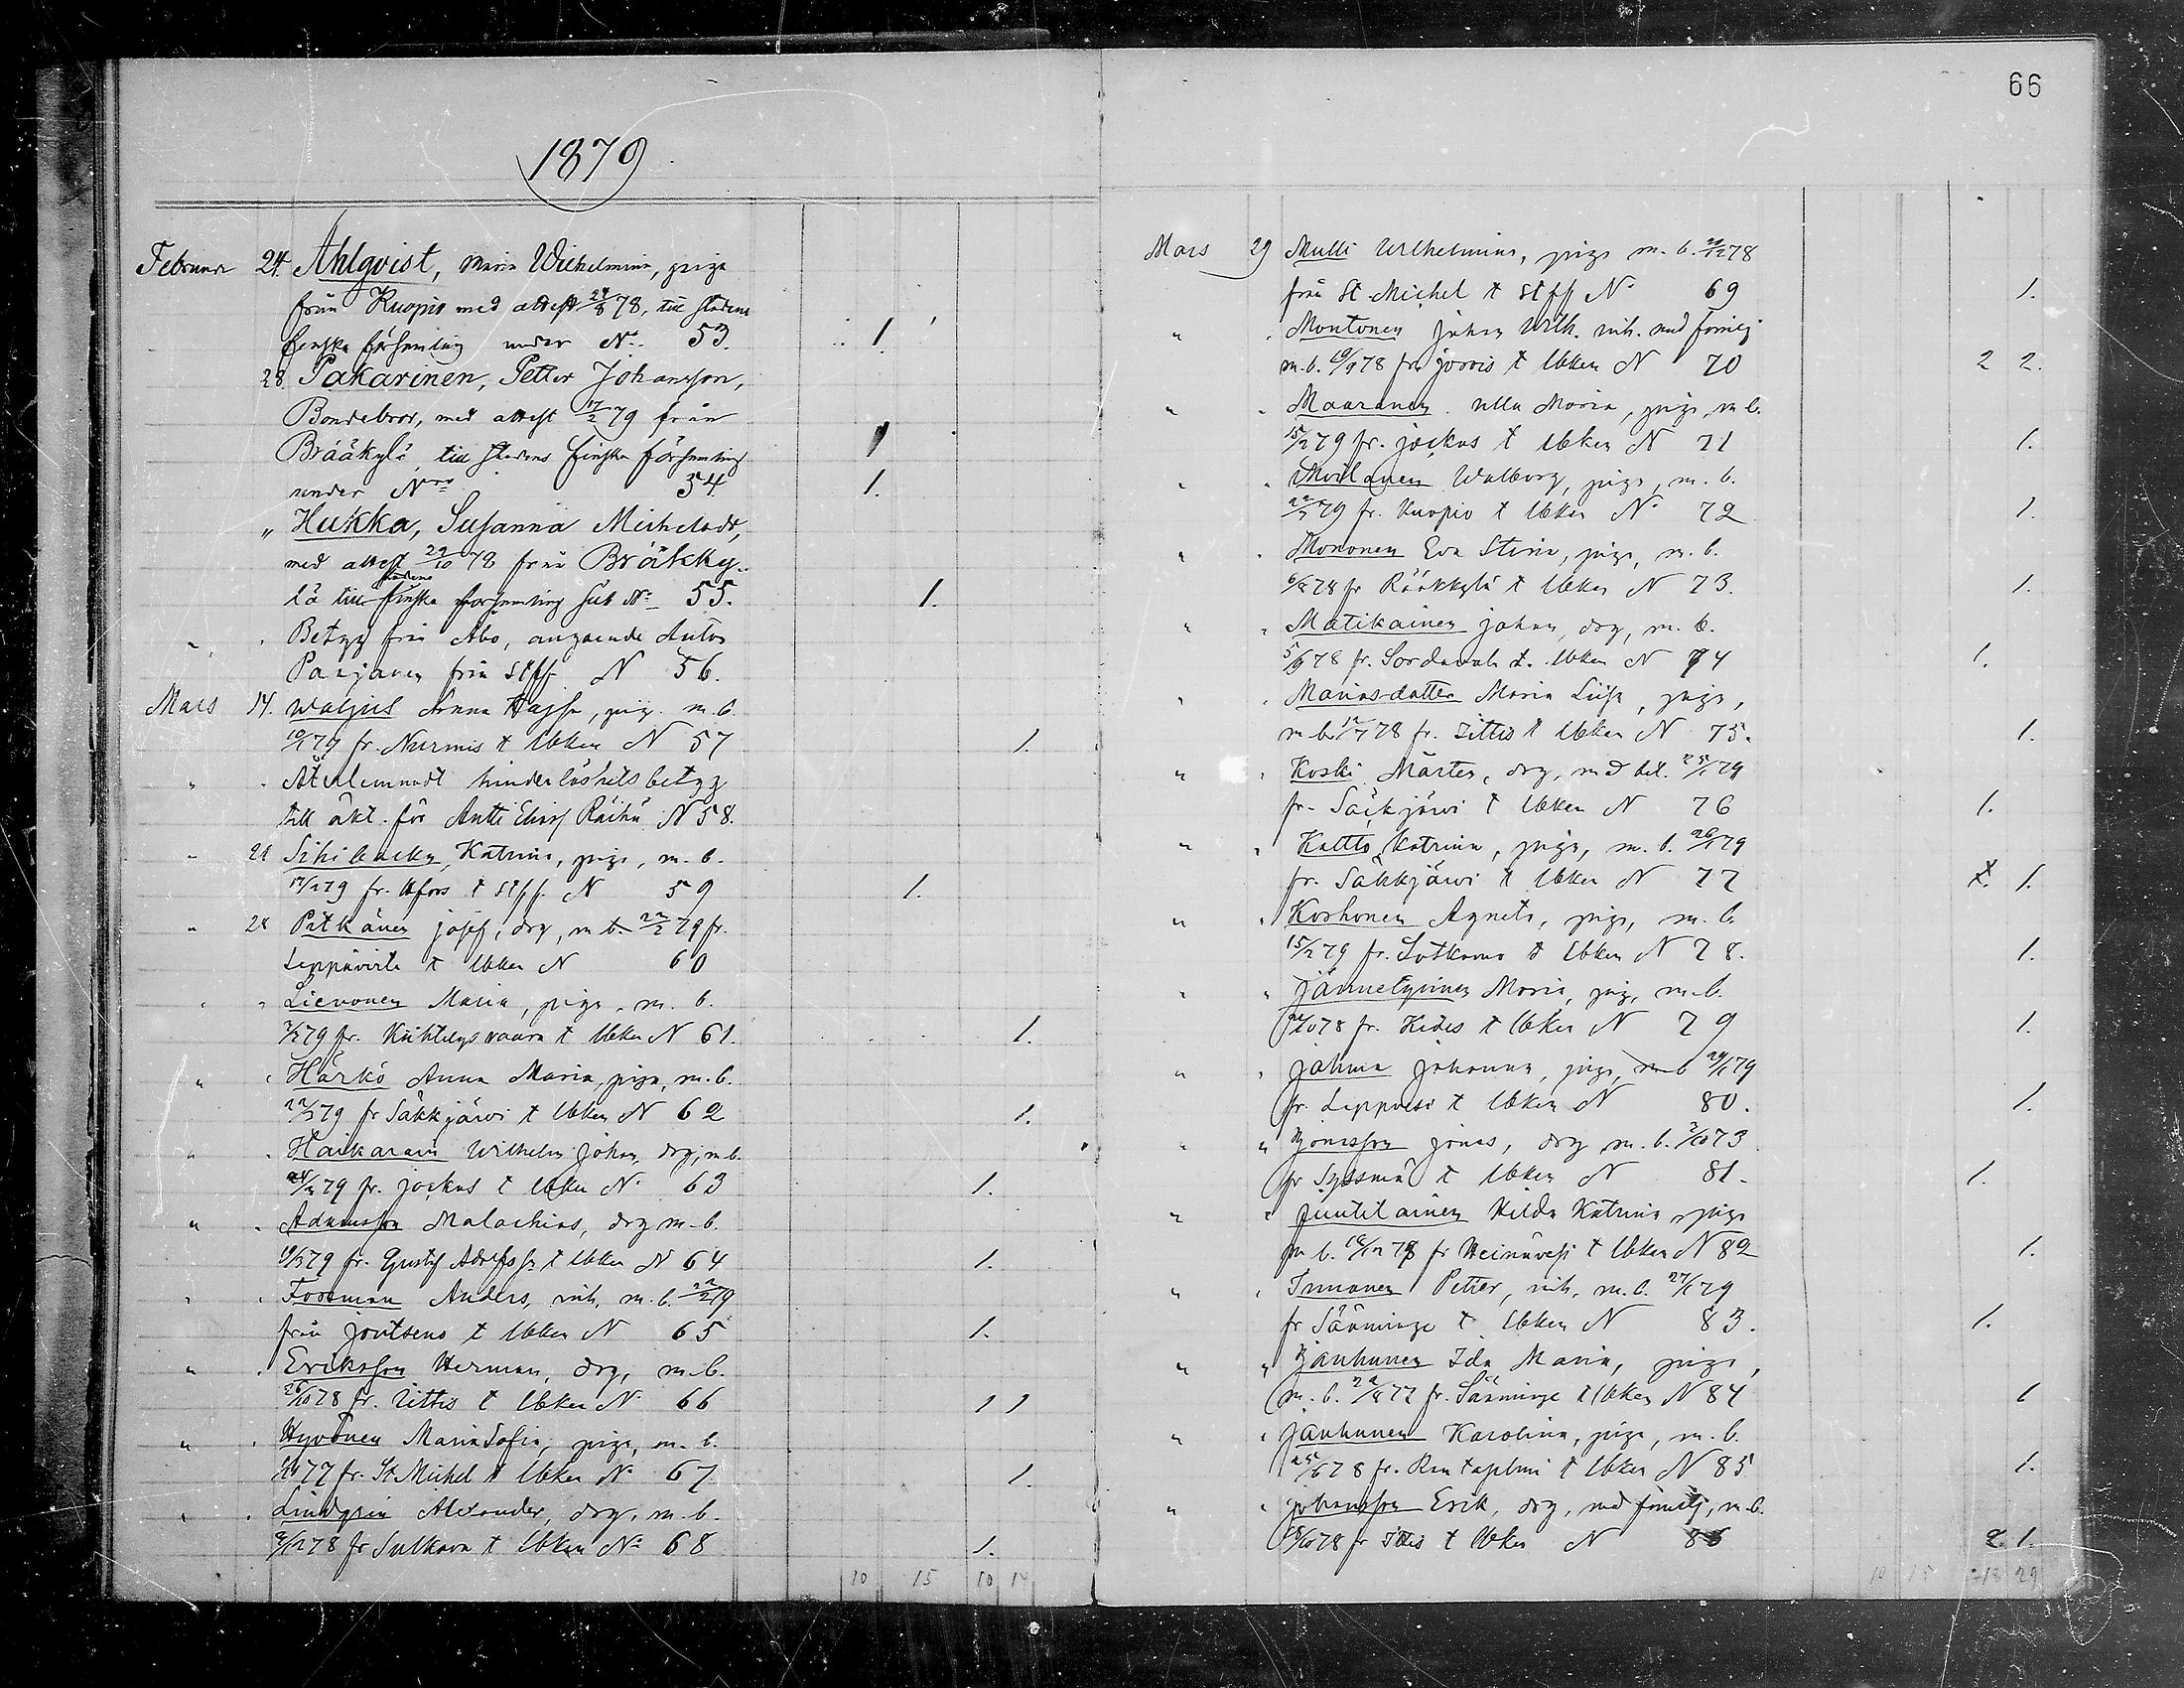 66
1879
Februari 24. Ahlqvist, Maria Wilhelmina, piga
från Kuopio med attest 24/8 78, till stadens
finska församling under No. 53. 1.
28 Pakarinen, Petter Johansson,
Bondebror, med attest 17/2 79 från
Brääkylä, till stadens finska församling
under Nro 54. 1.
" Hukka, Susanna Michelsdr,
med attest 29/10 78 från Bräkky-
lä till stadens finska församling sub No 55. 1.
" " Betyg från Åbo, angaende Anton
Parjanen från Stff N 56.
Mars 14. Waljus Anna Kajsa, pig. m. b.
10/1 79 fr. Nurmis t Ubken N 57 1.
" " Återlemnadt hinderlöshetsbetyg
till äkt. för Antti Eliass Räihä N 58.
" 21 Katrina, piga, m. b.
17/2 79 fr. Hfors t Stff. N 59 1.
" 28 Pitkänen Josef, drg, m b. 22/2 79 fr.
Leppävirta t Ubken N 60
" " Lievonen Maria, piga, m. b.
3/2 79 fr. Kiihtelysvaara t Ubken N 61. 1.
" " Härkö Anna Maria, piga, m. b.
22/2 79 fr Säkkjärvi t Ubken N 62 1.
" " Haikarain Wilhelm Johan, drg, m b.
24/2 79 fr. Jockas t Ubken N. 63 1.
" " Adamsson Malachias, drg m. b.
19/3 79 fr. Gustaf Adolfs t Ubken N 64 1.
" " Forsman Anders, inh. m. b. 22/2 79
från Joutseno t Ubken N 65 1.
" " Eriksson Herman, drg, m. b.
26/10 78 fr. Zittis t Ubken N 66 1 1
" " Hyvönen Maria Sofia, piga, m. b.
77 fr. St Michel t Ubken No 67 1.
" " Lindgren Alexander, drg, m. b.
9/12 78 fr Sulkava t Ubken No 68 1.
10 15 10 14
Mars 29 Multi Wilhelmina, piga m. b. 78
från St. Michel t Stff No 69 1.
" " Montonen Johan Wilh. inh. med familj
m. b. 19/9 78 från Jorois t Ubken N 70 2 2.
" " Maaranen Ulla Maria, piga, m b.
15/2 79 fr. Jockas t Ubken N 71 1.
" " Moilanen Walborg, piga, m. b.
22/2 79 fr. Kuopio t Ubken No 72 1.
" " Mononen Eva Stina, piga, m. b.
78 fr Rääkkylä t Ubken N 73. 1.
" " Matikainen Johan, drg, m. b.
78 fr. Sordavala t. Ubken N 74 1.
" " Mariasdotter Maria Lisa, piga,
m b. 78 fr. Zittis t Ubken N 75. 1.
" " Koski Mårten, drg, med bet. 25/1 79
fr. Säckjärvi t Ubken N 76 1.
" " Kaltto Katrina, piga, m. b. 26/1 79
fr. Säkkjärvi t Ubken N 77 1. 1.
" " Korhonen Agneta, piga, m. b.
15/2 79 fr. Sotkamo t Ubken N 78. 1.
" " Jännetyinen Maria, pig, m. b.
10 78 fr. Kides t Ubken N 79 1.
" " Jahma Johanna, piga, m b 29/1 79
fr. t Ubken N 80. 1.
" " Jonasson Jonas, drg m. b. 2/10 73
fr Sysmä t Ubken N 81. 1.
" " Juutilainen Hilda Katrina piga
m b. 78 fr Heinävesi t Ubken N 82 1.
" " Immonen Petter, inh. m. b. 27/1 79
fr Sääminge t Ubken N 83. 1.
" " Janhunen Ida Maria, piga,
m. b. 77 fr. Sääminge t Ubken N 84 1
" " Janhunen Karolina, piga, m. b.
25/6 78 fr. Rantasalmi t Ubken N 85 1.
" " Johansson Erik, drg, med familj, m b.
10 78 fr Ittis t Ubken N 86 2 1.
10 15 18 29